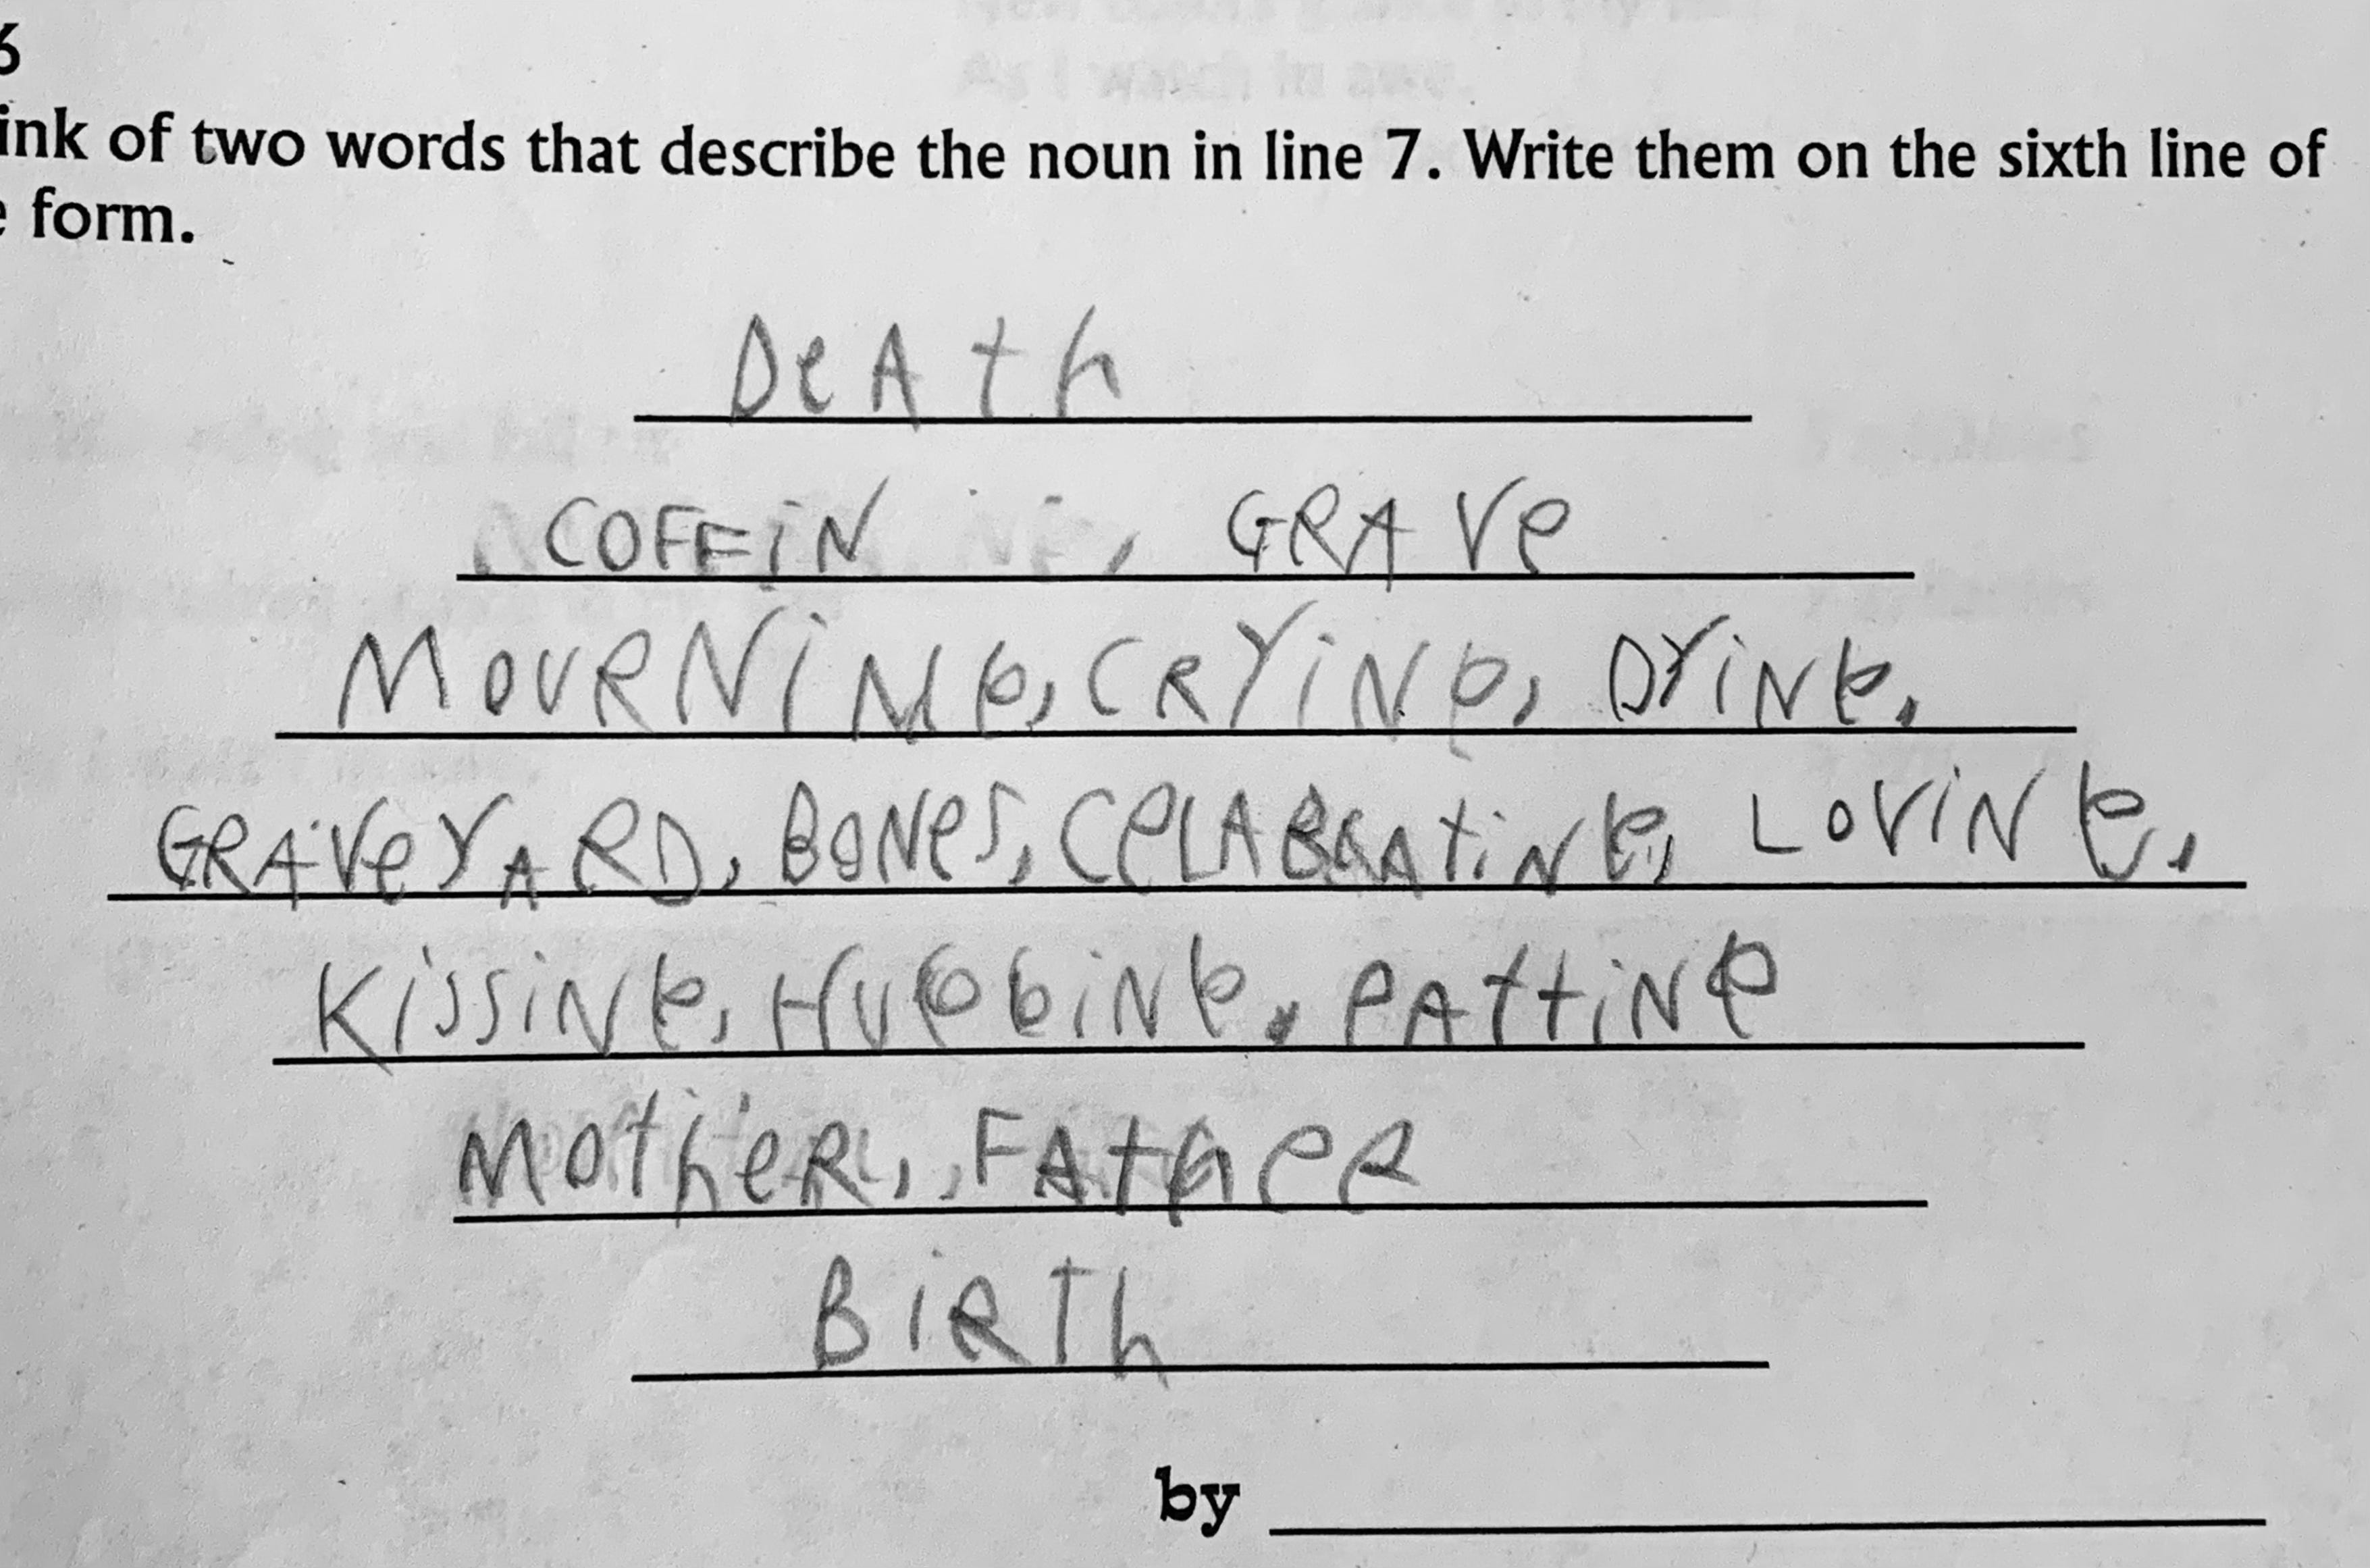 6
ink of two words that describe the noun in line 7. Write them on the sixth line of
e form.
DeAth
COFFiN, GRAVe
MOURNiNG, CRYiNG, DYiNG,
GRAVeYARD, BONeS, CeLABRATiNG, LOViNG,
KiSSiNG, HUGGiNG, PATTiNG
MOtheR, FAtheR
BiRTh
by